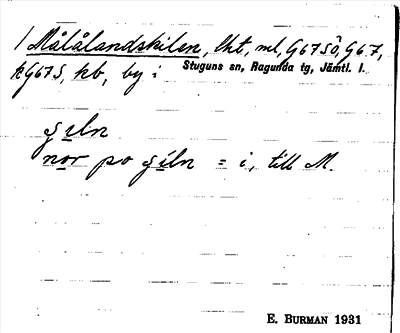 / Målålandskilen, lht, ml, G67SÖ, G67,
kG67S, kb, by i Stuguns sn, Ragunda tg, Jämtl. l.
siln
nor po siln = i, till M.
E. BURMAN 1931